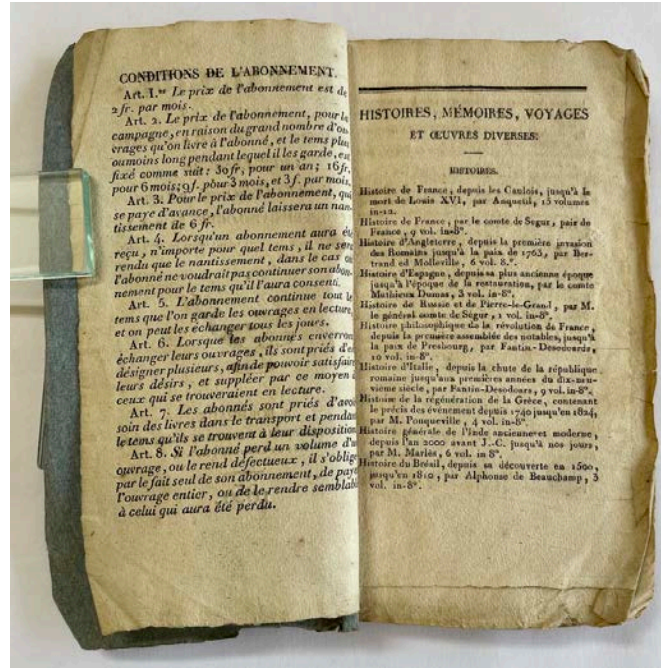 CONDITIONS DE L'ABONNEMENT.
Art. I.er Le prix de l'abonnement est de
2 fr. par mois.
Art. 2. Le prix de l'abonnement, pour la
campagne, en raison du grand nombre d'ou-
vrages qu'on livre à l'abonné, et le tems plus
ou moins long pendant lequel il les garde, est
fixé comme suit : 30 fr, pour un an; 16 fr,
pour 6 mois; 9 f. pour 3 mois, et 3 f. par mois.
Art. 3. Pour le prix de l'abonnement, qui
se paye d'avance, l'abonné laissera un nan-
tissement de 6 fr.
Art. 4. Lorsqu'un abonnement aura été
reçu, n'importe pour quel tems, il ne sera
rendu que le nantissement, dans le cas où
l'abonné ne voudrait pas continuer son abon-
nement pour le tems qu'il l'aura consenti.
Art. 5. L'abonnement continue tout le
tems que l'on garde les ouvrages en lecture,
et on peut les échanger tous les jours.
Art. 6. Lorsque les abonnés enverront
échanger leurs ouvrages, ils sont priés d'en
désigner plusieurs, afin de pouvoir satisfaire
leurs désirs, et suppléer par ce moyen à
ceux qui se trouveraient en lecture.
Art. 7. Les abonnés sont priés d'avoir
soin des livres dans le transport et pendant
le tems qu'ils se trouvent à leur disposition.
Art. 8. Si l'abonné perd un volume d'un
ouvrage, ou le rend défectueux, il s'oblige
par le fait seul de son abonnement, de payer
l'ouvrage entier, ou de le rendre semblable
à celui qui aura été perdu.
HISTOIRES, MÉMOIRES, VOYAGES
ET ŒUVRES DIVERSES.
HISTOIRES.
Histoire de France, depuis les Gaulois, jusqu'à la
mort de Louis XVI, par Anquetil, 15 volumes
in-12.
Histoire de France, par le comte de Ségur, pair de
France, 9 vol. in-8°.
Histoire d'Angleterre, depuis la première invasion
des Romains jusqu'à la paix de 1763, par Ber-
trand ed Molleville, 6 vol. 8.°.
Histoire d'Espagne, depuis sa plus ancienne époque
jusqu'à l'époque de la restauration, par le comte
Mathieux Dumas, 3 vol. in-8°.
Histoire de Russie et de Pierre-le-Grand, par M.
le général comte de Ségur, 1 vol. in-8°.
Histoire philosophique de la révolution de France,
depuis la première assemblée des notables, jusqu'à
la paix de Presbourg, par Fantin-Desodoards,
10 vol. in-8°.
Histoire d'Italie, depuis la chute de la république
romaine jusqu'aux premières années du dix-neu-
vième siècle, par Fantin-Desodoars, 9 vol. in-8°.
Histoire de la régénération de la Grèce, contenant
le précis des événement depuis 1740 jusqu'en 1824,
par M. Pouqueville, 4 vol. in-8°.
Histoire générale de l'Inde ancienne et moderne,
depuis l'an 2000 avant J.-C. jusqu'à nos jours,
par M. Marlès, 6 vol. in 8°.
Histoire du Brésil, depuis sa découverte en 1500,
jusqu'en 1810, par Alphonse de Beauchamp, 3
vol. in-8°.